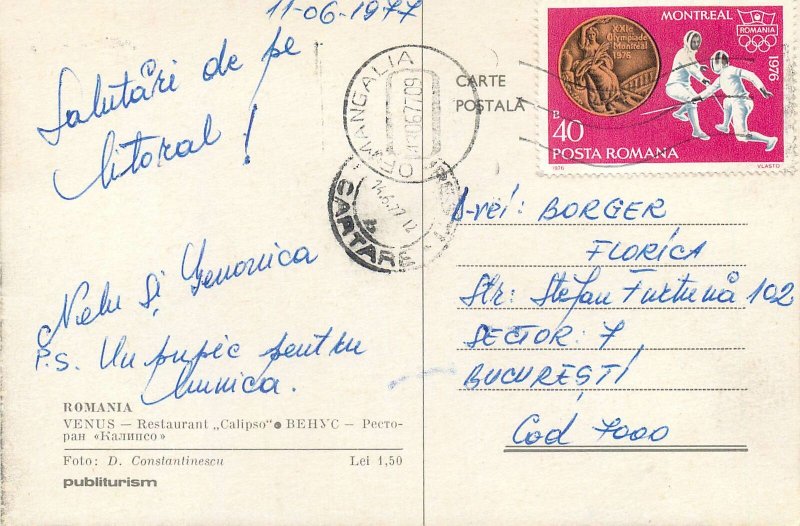 11-06-1977
Salutări de pe
litoral!
Nelu și
P.S. Un pupic pentru
ROMANIA
VENUS — Restaurant „Calipso" ● ВЕНУС — Ресто-
ран «Калипсо»
Foto: D. Constantinescu Lei 1,50
publiturism
CARTE
POȘTALĂ
MANGALIA
CARTARE
14.6.77.12
MONTREAL
ROMANIA
1976
XXIe
Olympiade
Montréal
1976
B
40
POSTA ROMANA
1976 VLASTO
D-rei: BORGER
FLORICA
Str: Ștefan Furtună 102
SECTOR: 7
BUCUREȘTI
Cod 7000